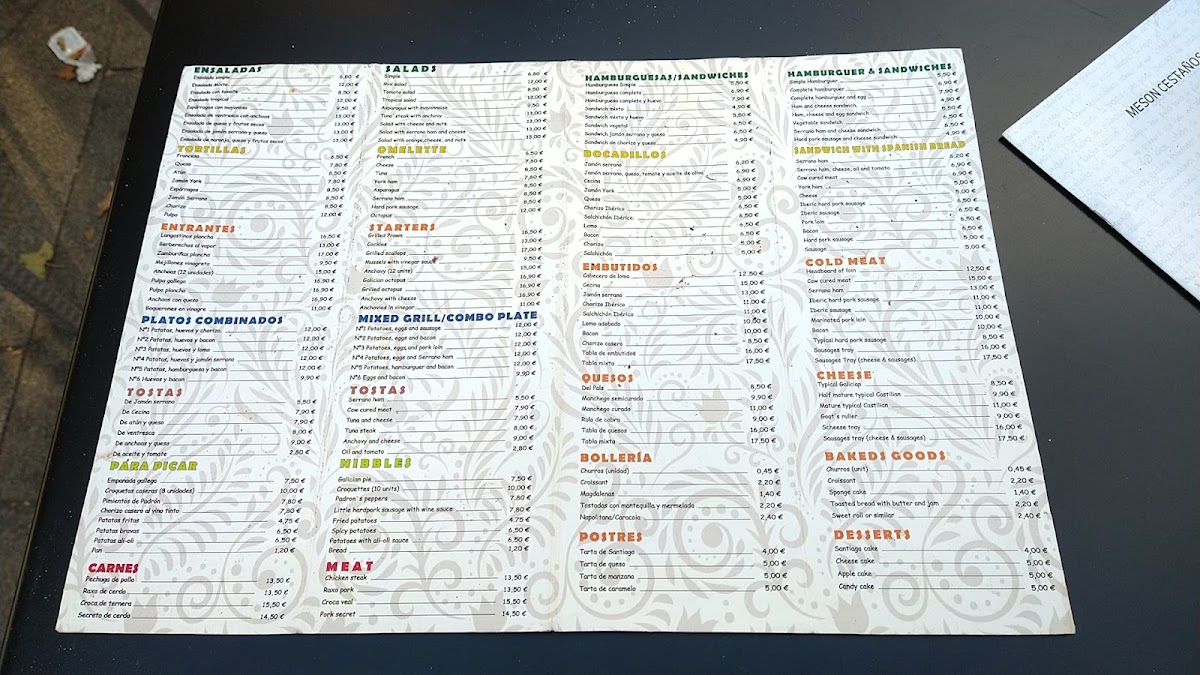 ENSALADAS
Ensalada simple 6,80 €
Ensalada mixta 12,00 €
Ensalada con tomate 8,50 €
Ensalada tropical 12,00 €
Espárragos con mayonesa 9,50 €
Ensalada de ventresca con anchoas 13,00 €
Ensalada de queso y frutos secos 13,00 €
Ensalada de jamón serrano y queso 13,00 €
Ensalada de naranja, queso y frutos secos
TORTILLAS
Francesa 6,50 €
Queso 7,80 €
Atún 8,50 €
Jamón York 7,80 €
Espárragos 8,50 €
Jamón Serrano 8,50 €
Chorizo 8,50 €
Pulpo 12,00 €
ENTRANTES
Langostinos plancha 16,50 €
Berberechos al vapor 13,00 €
Zamburiñas plancha 17,00 €
Mejillones vinagreta 9,50 €
Anchoas (12 unidades) 15,00 €
Pulpo gallega 16,90 €
Pulpo plancha 16,90 €
Anchoas con queso 16,90 €
Boquerones en vinagre 11,00 €
PLATOS COMBINADOS
Nº1 Patatas, huevos y chorizo 12,00 €
Nº2 Patatas, huevos y bacon 12,00 €
Nº3 Patatas, huevos y lomo 12,00 €
Nº4 Patatas, huevos y jamón serrano 12,00 €
Nº5 Patatas, hamburguesa y bacon 12,00 €
Nº6 Huevos y bacon 9,90 €
TOSTAS
De Jamón serrano 5,50 €
De Cecina 7,90 €
De atún y queso 7,90 €
De ventresca 8,00 €
De anchoas y queso 9,00 €
De aceite y tomate 2,80 €
PARA PICAR
Empanada gallega 7,50 €
Croquetas caseras (8 unidades) 10,00 €
Pimientos de Padrón 7,80 €
Chorizo casero al vino tinto 7,80 €
Patatas fritas 4,75 €
Patatas bravas 6,50 €
Patatas ali-oli 6,50 €
Pan 1,20 €
CARNES
Pechuga de pollo 13,50 €
Raxo de cerdo 13,50 €
Croca de ternera 15,50 €
Secreto de cerdo 14,50 €
SALADS
Simple 6,80 €
Mix salad 12,00 €
Tomato salad 8,50 €
Tropical salad 12,00 €
Asparagus with mayonnaise 9,50 €
Tuna' steak with anchovy 13,00 €
Salad with cheese and nuts 13,00 €
Salad with serrano ham and cheese 13,00 €
Salad with orange,cheese, and nuts
OMELETTE
French 6,50 €
Cheese 7,80 €
Tuna 8,50 €
York ham 7,80 €
Asparagus 8,50 €
Serrano ham 8,50 €
Hard pork sausage 8,50 €
Octopus 12,00 €
STARTERS
Grilled Prawn 16,50 €
Cockles 13,00 €
Grilled scallops 17,00 €
Mussels with vinegar sauce 9,50 €
Anchovy (12 units) 15,00 €
Galician octopus 16,90 €
Grilled octopus 16,90 €
Anchovy with cheese 16,90 €
Anchovies in vinegar 11,00 €
MIXED GRILL/COMBO PLATE
Nº1 Potatoes, eggs and sausage 12,00 €
Nº2 Potatoes, eggs and bacon 12,00 €
Nº3 Potatoes, eggs and pork loin 12,00 €
Nº4 Potatoes, eggs and Serrano ham 12,00 €
Nº5 Potatoes, hamburger and bacon 12,00 €
Nº6 Eggs and bacon 9,90 €
TOSTAS
Serrano ham 5,50 €
Cow cured meat 7,90 €
Tuna and cheese 7,90 €
Tuna steak 8,00 €
Anchovy and cheese 9,00 €
Oil and tomato 2,80 €
NIBBLES
Galician pie 7,50 €
Croquettes (10 units) 10,00 €
Padron´s peppers 7,80 €
Little hardpork sausage with wine sauce 7,80 €
Fried potatoes 4,75 €
Spicy potatoes 6,50 €
Potatoes with ali-oli sauce 6,50 €
Bread 1,20 €
MEAT
Chicken steak 13,50 €
Raxo pork 13,50 €
Croca veal 15,50 €
Pork secret 14,50 €
HAMBURGUESAS/SANDWICHES
Hamburguesa Simple 5,50 €
Hamburguesa completa 6,90 €
Hamburguesa completa y huevo 7,90 €
Sandwich mixto 4,90 €
Sandwich mixto y huevo 5,50 €
Sandwich vegetal 6,50 €
Sandwich jamón serrano y queso 6,50 €
Sandwich de chorizo y queso 4,90 €
BOCADILLOS
Jamón serrano 6,20 €
Jamón serrano, queso, tomate y aceite de oliva 6,90 €
Cecina 6,90 €
Jamón York 5,00 €
Queso 5,00 €
Chorizo Ibérico 6,50 €
Salchichón Ibérico 6,50 €
Lomo 6,50 €
Bacon 6,50 €
Chorizo 5,00 €
Salchichón 5,00 €
EMBUTIDOS
Cabecero de lomo 12,50 €
Cecina 15,00 €
Jamón serrano 13,00 €
Chorizo Ibérico 11,00 €
Salchichón Ibérico 11,00 €
Lomo adobado 10,00 €
Bacon 10,00 €
Chorizo casero 8,50 €
Tabla de embutidos 16,00 €
Tabla mixta 17,50 €
QUESOS
Del País 8,50 €
Manchego semicurado 9,90 €
Manchego curado 11,00 €
Rulo de cabra 9,00 €
Tabla de quesos 16,00 €
Tabla mixta 17,50 €
BOLLERÍA
Churros (unidad) 0,45 €
Croissant 2,20 €
Magdalenas 1,40 €
Tostadas con mantequilla y mermelada 2,20 €
Napolitana/Caracola 2,40 €
POSTRES
Tarta de Santiago 4,00 €
Tarta de queso 5,00 €
Tarta de manzana 5,00 €
Tarta de caramelo 5,00 €
HAMBURGUER & SANDWICHES
Simple Hamburguer 5,50 €
Complete hamburguer 6,90 €
Complete hamburguer and egg 7,90 €
Ham and cheese sandwich 4,90 €
Ham, cheese and egg sandwich 5,50 €
Vegetable sandwich 6,50 €
Serrano ham and cheese sandwich 6,50 €
Hard pork sausage and cheese sandwich 4,90 €
SANDWICH WITH SPANISH BREAD
Serrano ham 6,20 €
Serrano ham, cheese, oil and tomato 6,90 €
Cow cured meat 6,90 €
York ham 5,00 €
Cheese 5,00 €
Iberic hard pork sausage 6,50 €
Iberic sausage 6,50 €
Pork loin 6,50 €
Bacon 6,50 €
Hard pork sausage 5,00 €
Sausage 5,00 €
COLD MEAT
Headboard of loin 12,50 €
Cow cured meat 15,00 €
Serrano ham 13,00 €
Iberic hard pork sausage 11,00 €
Iberic sausage 11,00 €
Marinated pork loin 10,00 €
Bacon 10,00 €
Typical hard pork sausage 8,50 €
Sausages tray 16,00 €
Sausages Tray (cheese & sausages) 17,50 €
CHEESE
Typical Galician 8,50 €
Half mature typical Castilian 9,90 €
Mature typical Castilian 11,00 €
Goat´s ruller 9,00 €
Scheese tray 16,00 €
Sausages tray (cheese & sausages) 17,50 €
BAKEDS GOODS
Churros (unit) 0,45 €
Croissant 2,20 €
Sponge cake 1,40 €
Toasted bread with butter and jam 2,20 €
Sweet roll or similar 2,40 €
DESSERTS
Santiago cake 4,00 €
Cheese cake 5,00 €
Apple cake 5,00 €
Candy cake 5,00 €
MESON CESTAÑOS